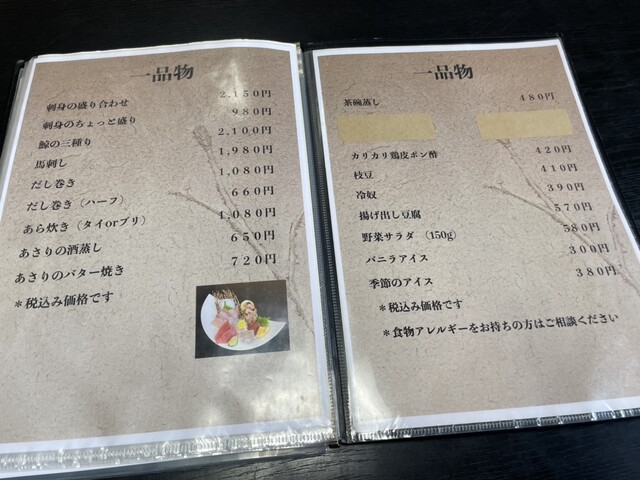 一品物
刺身の盛り合わせ 2,150円
刺身のちょっと盛り 980円
鯨の三種り 2,100円
馬刺し 1,980円
だし巻き 1,080円
だし巻き（ハーフ） 660円
あら炊き（タイorブリ） 1,080円
あさりの酒蒸し 650円
あさりのバター焼き 720円
＊税込み価格です
一品物
茶碗蒸し 480円
カリカリ鶏皮ポン酢 420円
枝豆 410円
冷奴 390円
揚げ出し豆腐 570円
野菜サラダ（150g） 580円
バニラアイス 300円
季節のアイス 380円
＊税込み価格です
＊食物アレルギーをお持ちの方はご相談ください